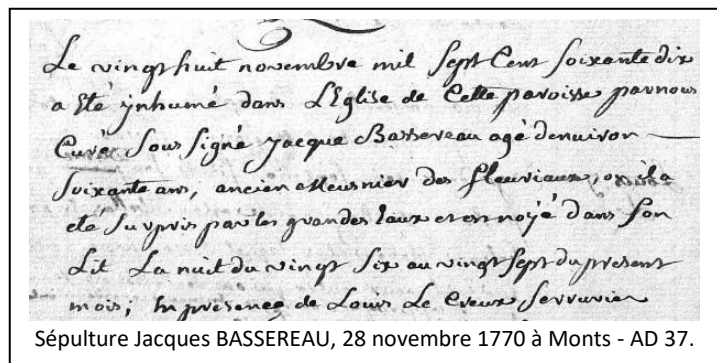 Le vingt huit novembre mil Sept Cent Soixante dix
a Eté ynhumé dans L'Eglise de Cette paroisse par nous
Curé Sous Signé jacque Bassereau agé denuiron
Soixante ans, ancien Meusnier des fleuriaux, ou il a
eté Surpris par les grandes Eaux et ennoyé dans Son
Lit La nuit du vingt Six au vingt Sept du present
mois; En présence de Louis Le Creux Serrurier
Sépulture Jacques BASSEREAU, 28 novembre 1770 à Monts - AD 37.